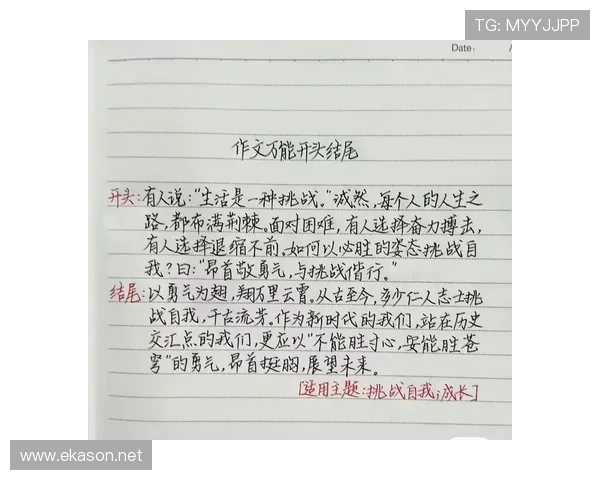 TG: MYYJJPP
Date: /
作文万能开头结尾
开头:有人说:“生活是一种挑战。”诚然,每个人的人生之
路,都布满荆棘。面对困难,有人选择奋力搏击,
有人选择退缩不前。如何以必胜的姿态挑战自
我?曰:“昂首敬勇气,与挑战偕行。”
结尾:以勇气为翅,翔万里云霄。从古至今,多少仁人志士挑
战自我,千古流芳。作为新时代的我们,站在历史
交汇点的我们,更应以“不能胜寸心,安能胜苍
穹”的勇气,昂首挺胸,展望未来。
[适用主题:挑战自我;成长]
www.ekason.net